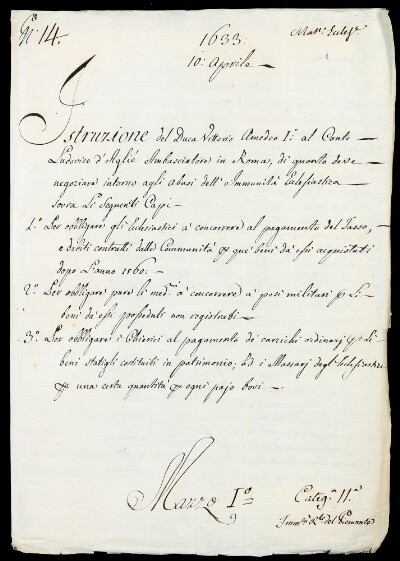 N.º 14.
1633:
Mat.ie Eccles.e
10: Aprile
Istruzione del Duca Vittorio Amedeo I.º al Conte
Ludovico d'Aglié Ambasciatore in Roma, di quanto deve
negoziare intorno agli abusi dell'Immunità Eclesiastica
sovra li seguenti Capi
1.º Per obbligare gli Eclesiastici a concorrere al pagamento del Tasso,
e debiti contratti dalle Communità p que' beni da essi acquistati
dopo l'anno 1560:
2.º Per obbligare pure li med.mi a concorrere a' pesi militari p li
beni da essi posseduti non registrabi
3.º Per obbligare i Chierici al pagamento de' carichi ordinarj p li
beni statigli costituiti in patrimonio; ed i Massarj degl'Eclesiastici
p una certa quantità p ogni pajo bovi
Mazzo I.º
Categ.a 11.a
9
Imm.tà R.le del Piemonte